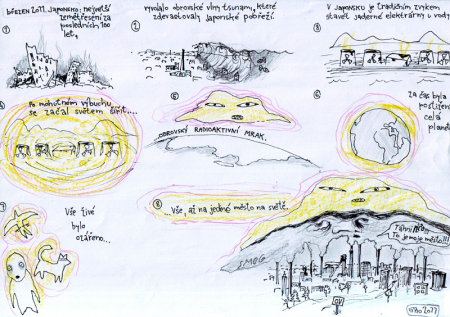 BŘEZEN 2011. JAPONSKO: největší
zemětřesení za
posledních 100
let,
1
2
vyvolalo obrovské vlny tsunami, které
zdevastovaly Japonské pobřeží.
3
V JAPONSKU JE tradičním zvykem
stavět jaderné elektrárny u vody
4
Po mohutném výbuchu,
se začal světem šířit....
5
OBROVSKÝ RADIOAKTIVNÍ MRAK.
6
za čas byla
postižena
celá
planeta
7
Vše živé
bylo
ozářeno...
8
...Vše, až na jediné město na světě.
SMOG
Táhni
To je moje město!!!
2011